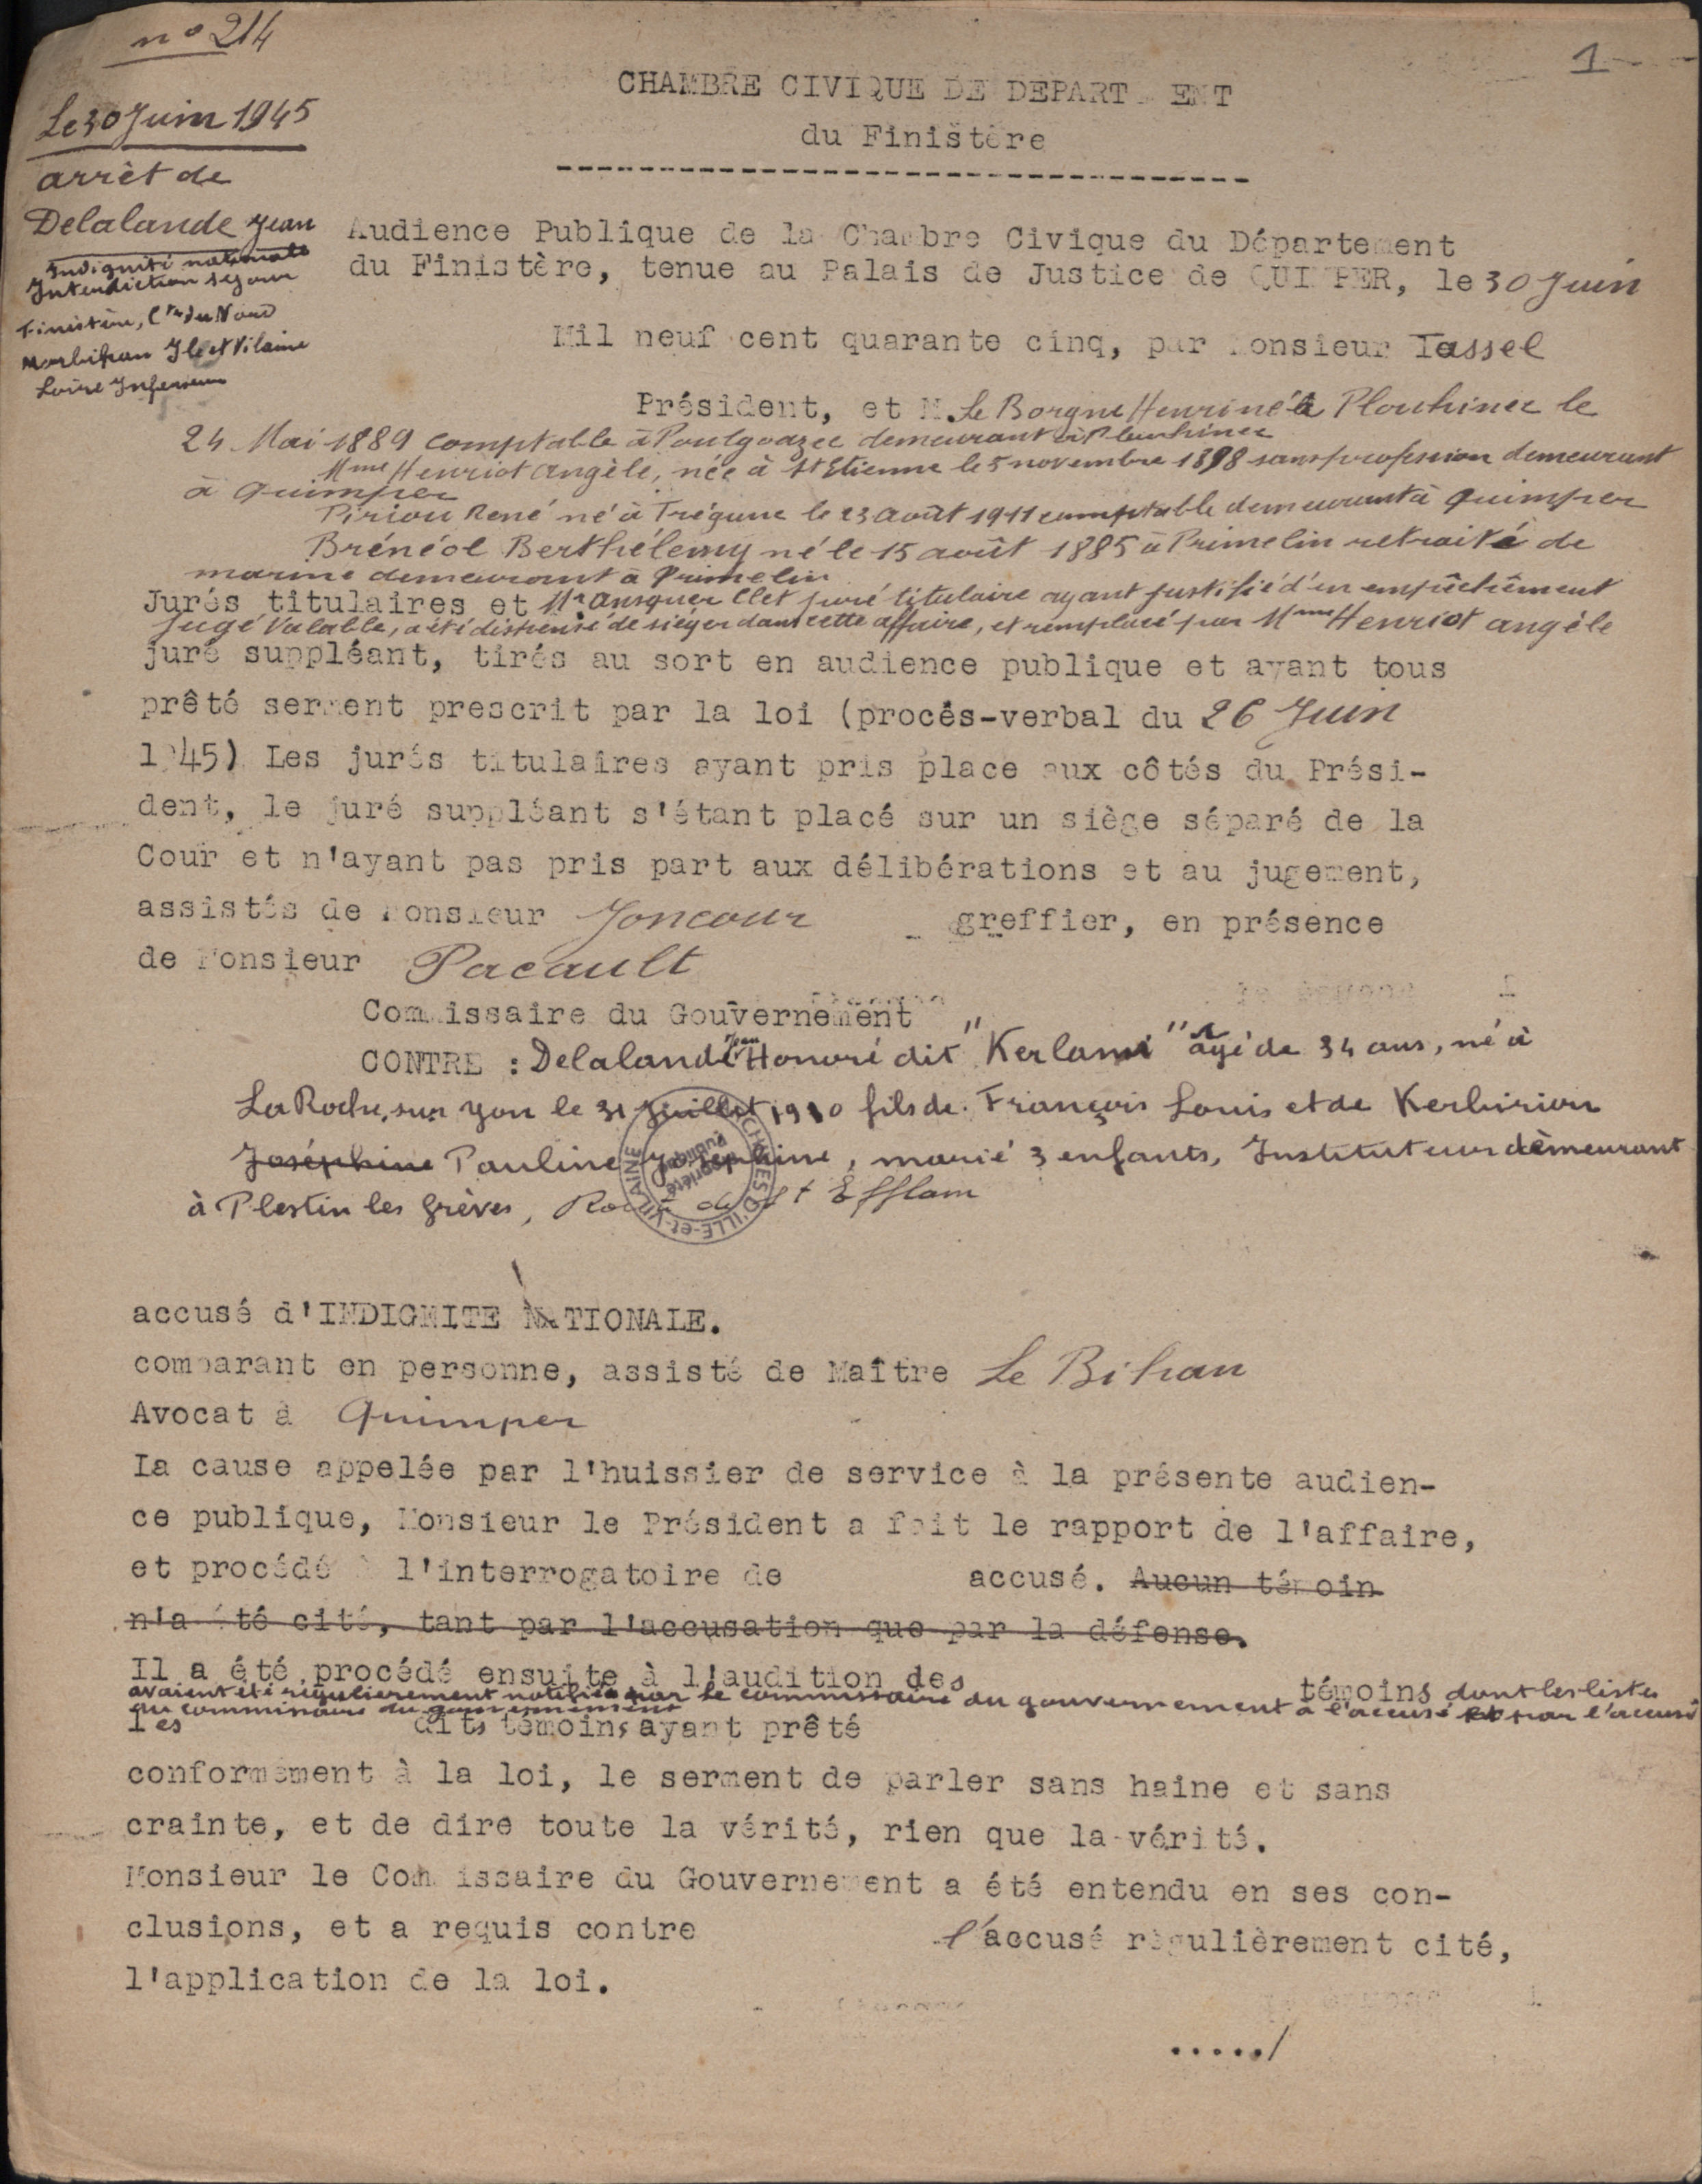 n° 214
1
Le 30 Juin 1945
arrêt de
Delalande Jean
Indignité nationale
Interdiction séjour
Finistère, Ctes du Nord
Morbihan Ile et Vilaine
Loire Inferieure
CHAMBRE CIVIQUE DE DEPART ENT
du Finistère
Audience Publique de la Chambre Civique du Département
du Finistère, tenue au Palais de Justice de QUIMPER, le 30 Juin
Mil neuf cent quarante cinq, par Monsieur Tassel
Président, et M. Le Borgne Henri né à Plouhinec le
24 Mai 1889 comptable à Poulgoazec demeurant à Plouhinec
Mme Henriot Angèle, née à St Etienne le 5 novembre 1898 sans profession demeurant
à Quimper
Piriou René né à Trégunc le 23 août 1911 comptable demeurant à Quimper
Brénéol Berthélemy né le 15 août 1885 à Primelin retraité de
marine demeurant à Primelin
Jurés titulaires et Mr Ansquer Clet juré titulaire ayant justifié d'un empêchement
jugé valable, a été dispensé de siéger dans cette affaire, et remplacé par Mme Henriot angèle
juré suppléant, tirés au sort en audience publique et ayant tous
prêté serment prescrit par la loi (procès-verbal du 26 Juin
1945) Les jurés titulaires ayant pris place aux côtés du Prési-
dent, le juré suppléant s'étant placé sur un siège séparé de la
Cour et n'ayant pas pris part aux délibérations et au jugement,
assistés de Monsieur Joncour greffier, en présence
de Monsieur Pacault
Commissaire du Gouvernement
CONTRE : Delalande Jean Honoré dit "Kerlann" âgé de 34 ans, né à
La Roche sur Yon le 31 Juillet 1910 fils de François Louis et de Kerbiriou
Joséphine Pauline Joséphine, marié 3 enfants, Instituteur demeurant
à Plestin les Grèves, Route de St Efflam
ARCHIVES D'ILLE-et-VILAINE
Propriété publique
accusé d'INDIGNITE NATIONALE.
comparant en personne, assisté de Maître Le Bihan
Avocat à Quimper
La cause appelée par l'huissier de service à la présente audien-
ce publique, Monsieur le Président a fait le rapport de l'affaire,
et procédé à l'interrogatoire de accusé. Aucun témoin
n'a été cité, tant par l'accusation que par la défense.
Il a été procédé ensuite à l'audition des témoins dont les listes
avaient été régulièrement notifiées par le commissaire du gouvernement à l'accusé et par l'accusé
au commissaire du gouvernement
les dits témoins ayant prêté
conformément à la loi, le serment de parler sans haine et sans
crainte, et de dire toute la vérité, rien que la vérité.
Monsieur le Com issaire du Gouvernement a été entendu en ses con-
clusions, et a requis contre l'accusé régulièrement cité,
l'application de la loi.
...../